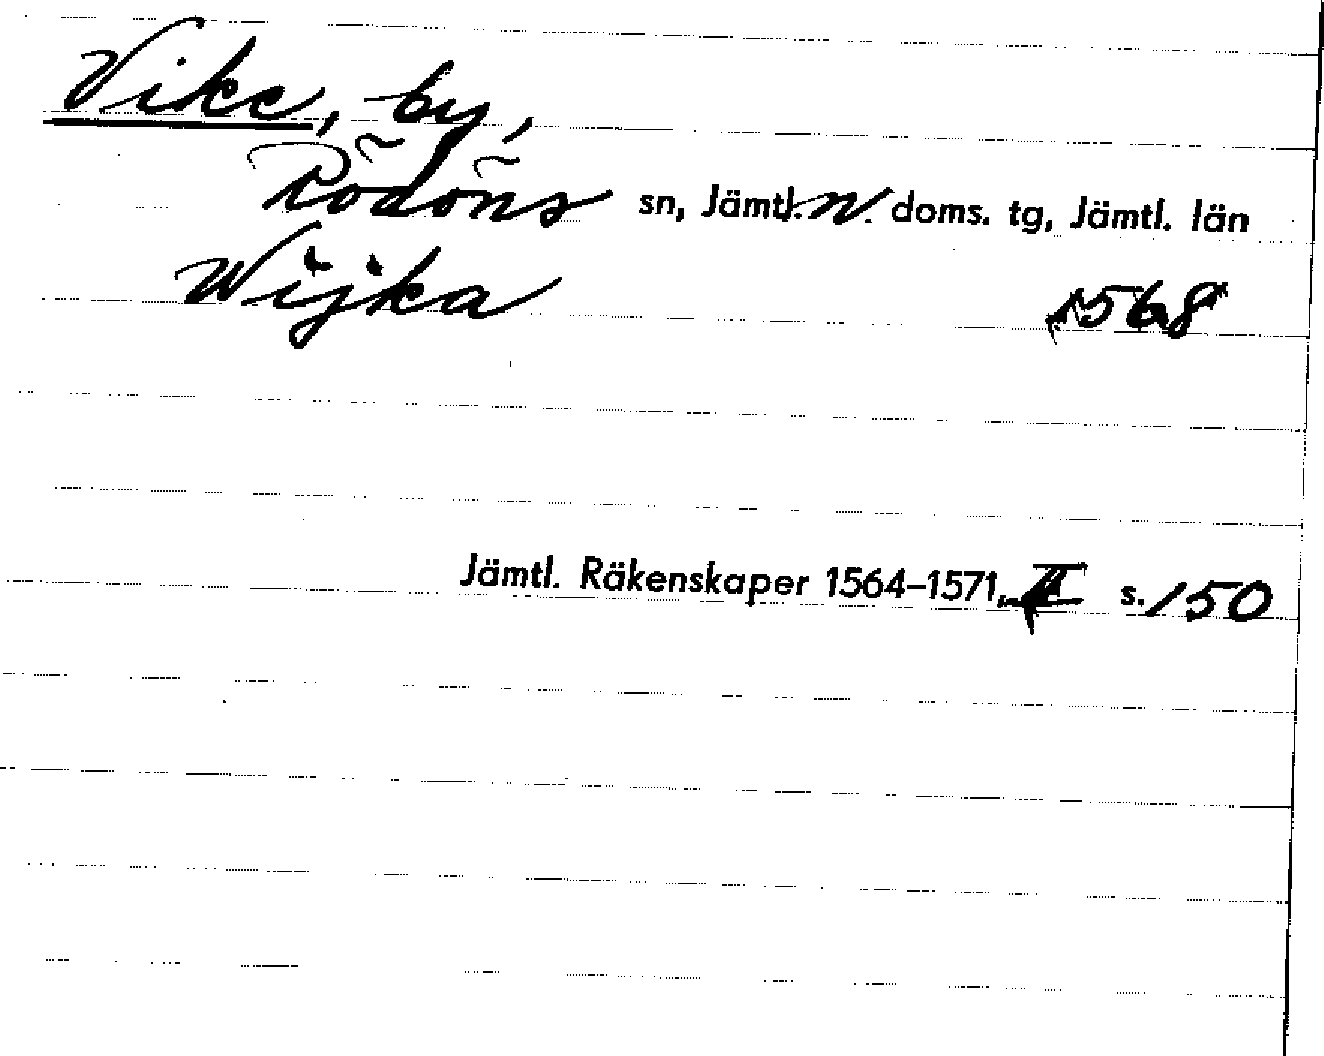 Vike, by,
Rödöns sn, Jämtl. N. doms. tg, Jämtl. län
Wijka 1568
Jämtl. Räkenskaper 1564–1571, II s. 150